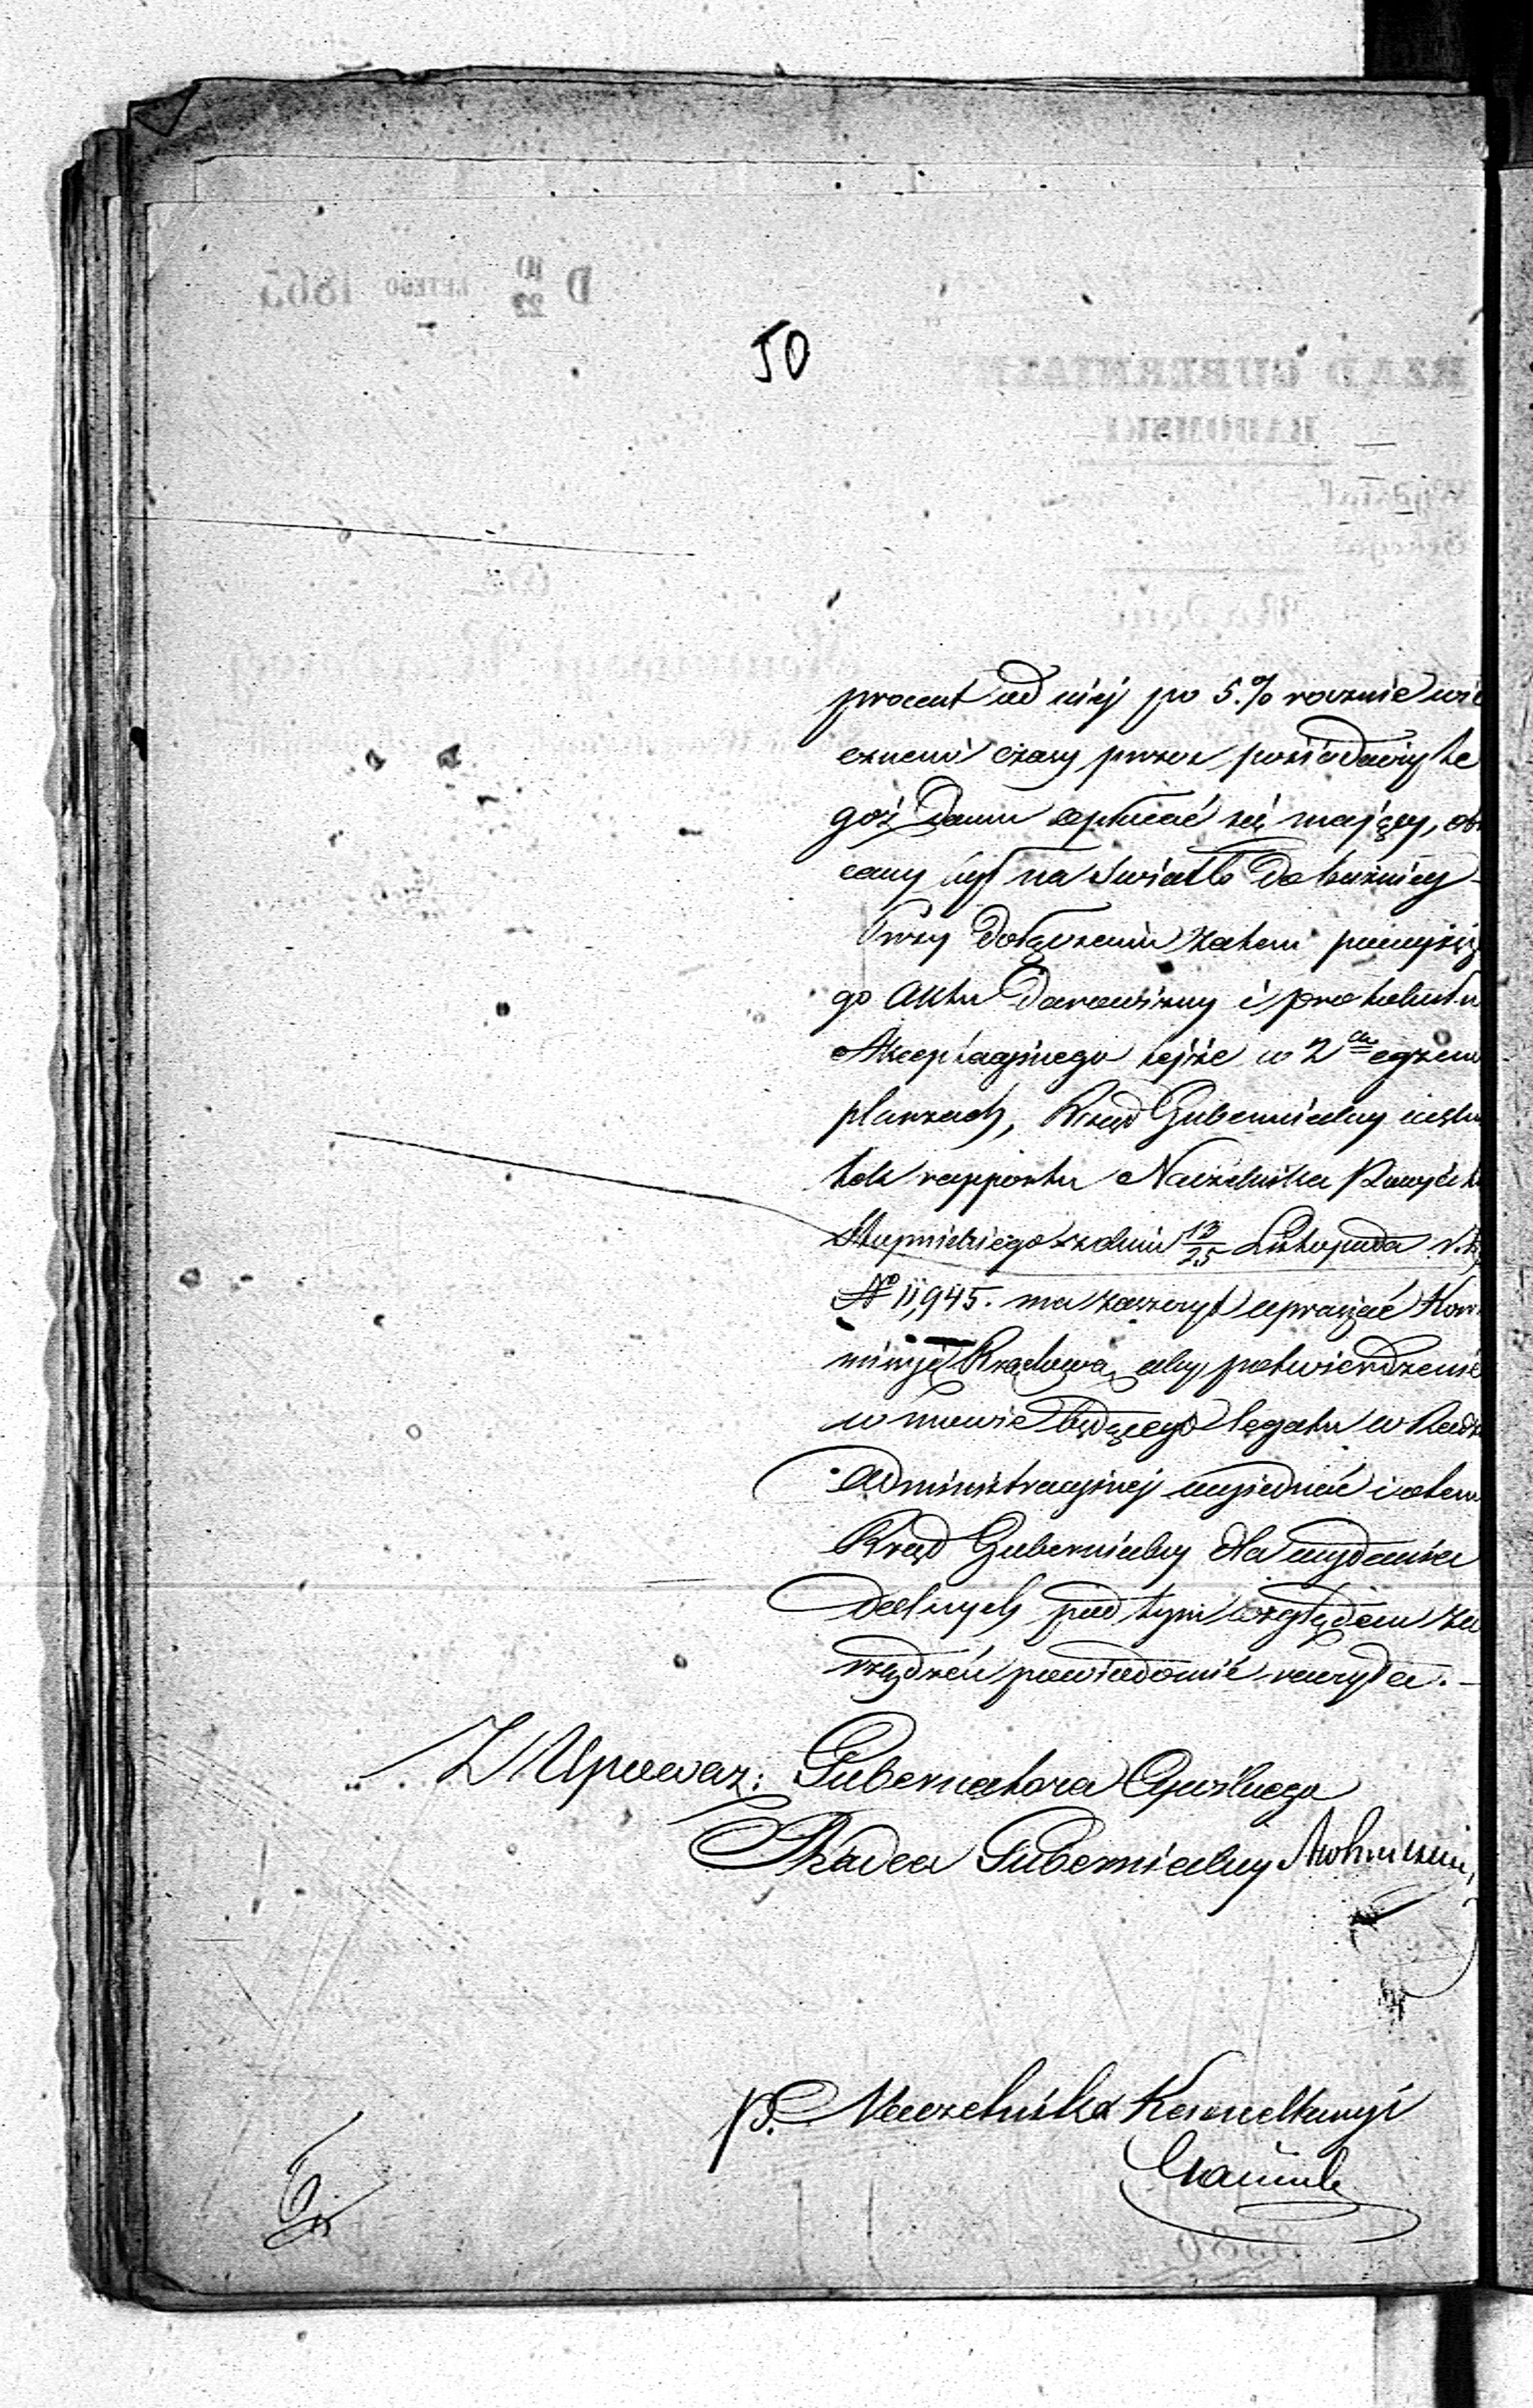 50
procent od niej po 5.% rocznie wie
cznemi czasy przez posiadaczy te
goż Domu opłacać się mający, obr
cany był na światło do bużnicy -
Przy dołączeniu zatem powyższe
go Aktu Darowizny i protokułu
Akceptacyjnego tejże w 2ch egzem
plarzach, Rząd Gubernialny wsku
tek rapportu Naczelnika Powiatu
Stopnickiego z dnia 13/25 Listopada r. z.
No 11,945. ma zaszczyt upraszać Kom
missyę Rządową, aby potwierdzenie
w mowie będącego legatu w Radzie
Administracyjnej wyjednać i o tem
Rząd Gubernialny dla wydania
dalszych pod tym względem za
rządzeń powiadomić raczyła. -
Z Upoważ: Gubernatora Cywilnego
Radca Gubernialny
p. Naczelnika Kancellaryi